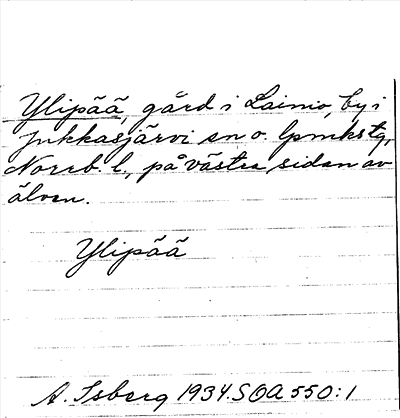 Ylipää, gård i Lainio, by i
Jukkasjärvi sn o. lpmkstg,
Norrb. l., på västra sidan av
älven.
Ylipää
A. Isberg 1934. SOA 550:1